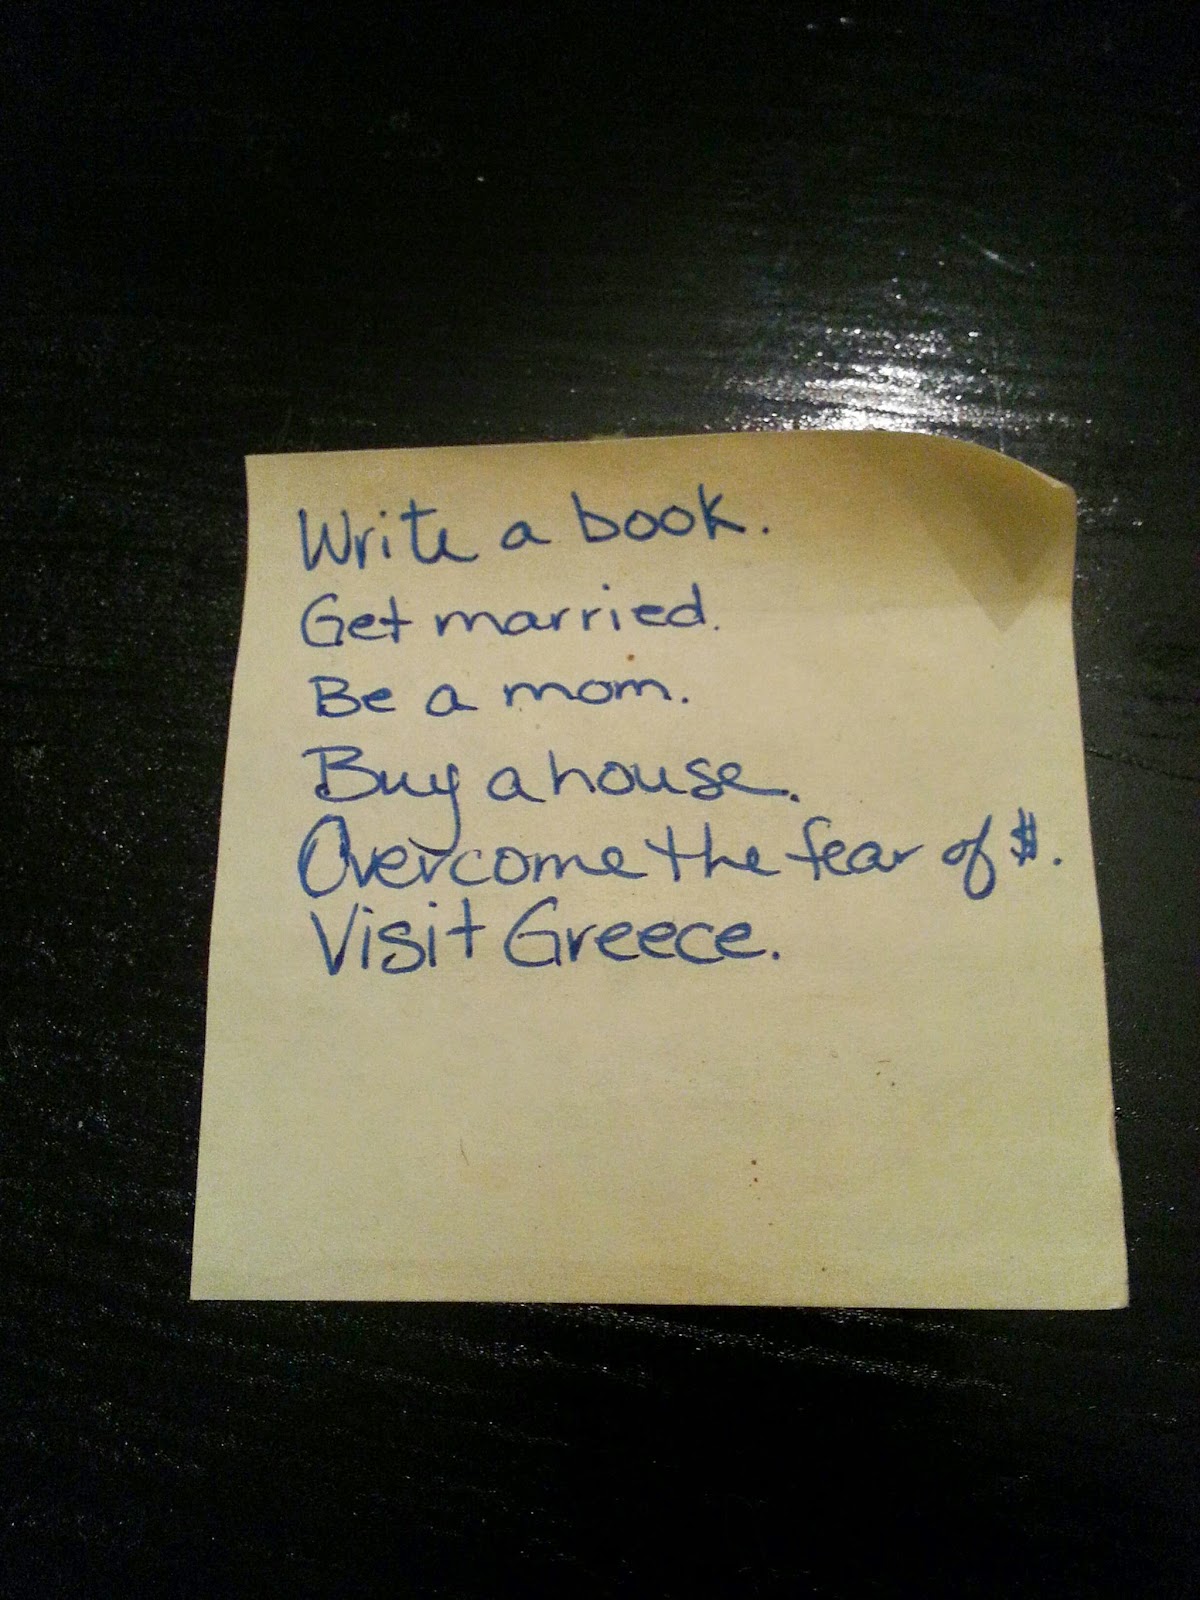 Write a book.
Get married.
Be a mom.
Buy a house.
Overcome the fear of $.
Visit Greece.